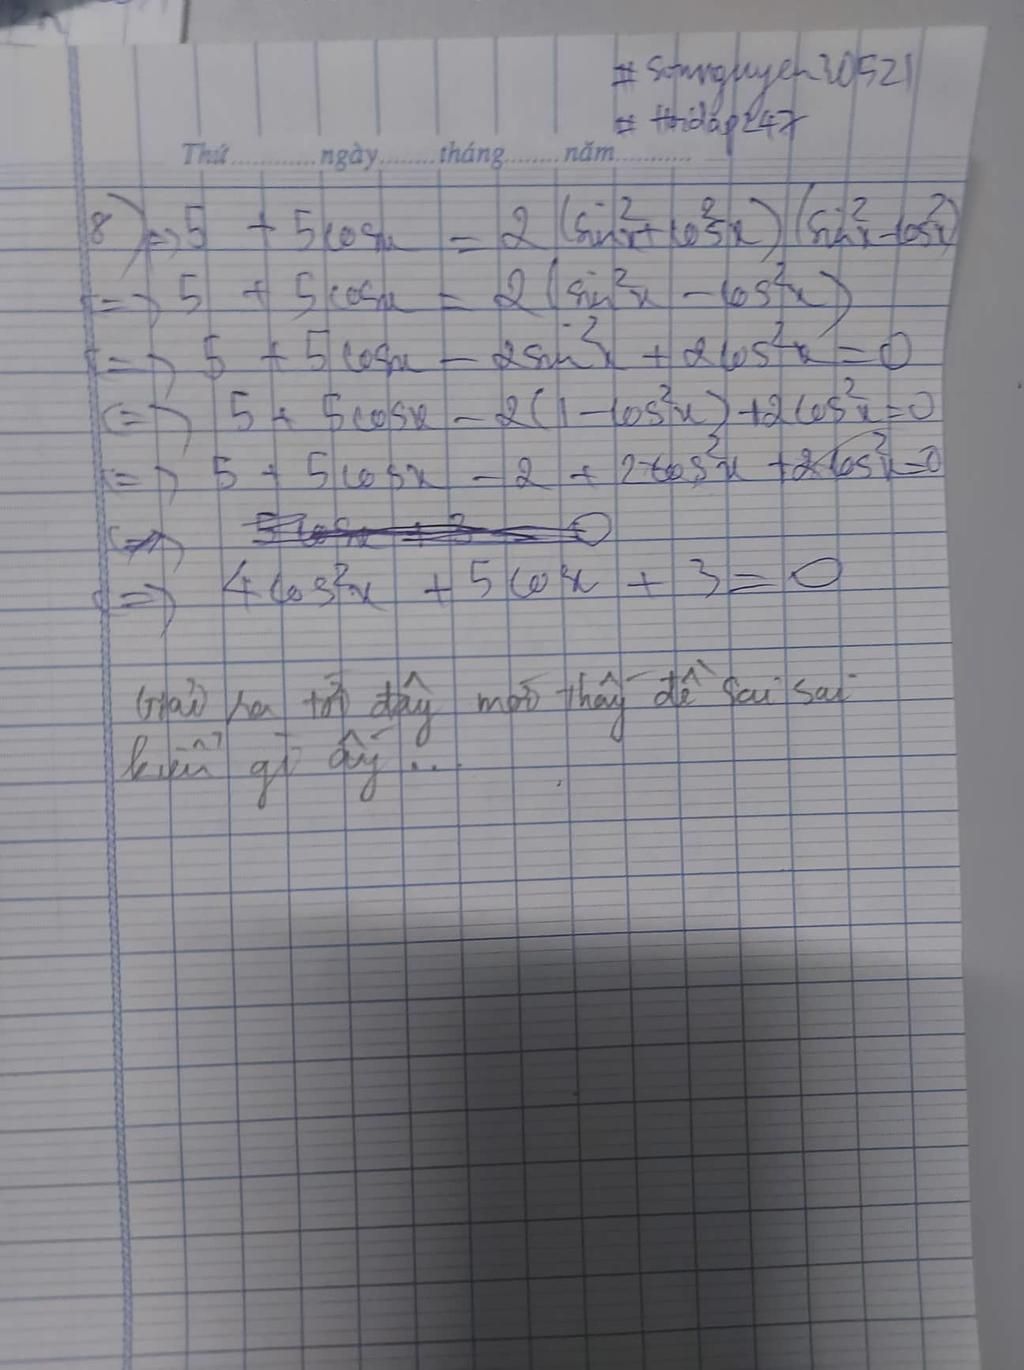 # sonnguyen30521
# Hoidap247
Thứ............ngày........tháng........năm............
8) => 5 + 5cosx = 2(sin²x+cos²x)(sin²x-cos²x)
<=> 5 + 5cosx = 2(sin²x - cos²x)
<=> 5 + 5cosx - 2sin²x + 2cos²x = 0
<=> 5 + 5cosx - 2(1-cos²x) + 2cos²x = 0
<=> 5 + 5cosx - 2 + 2cos²x + 2cos²x = 0
<=> 5cosx + 3 = 0
<=> 4cos²x + 5cosx + 3 = 0
Giải ra tới đây mới thấy đề sai sai
kiểu gì ấy ...